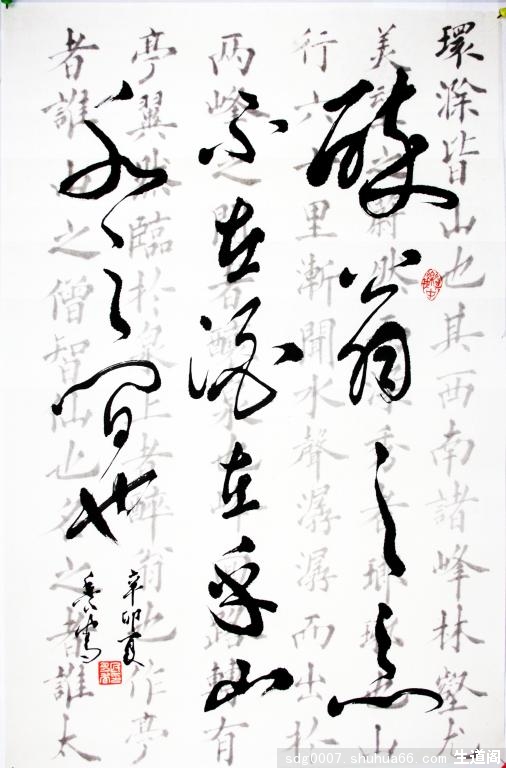 醉翁之意
不在酒在乎山
水之間也
辛卯夏
環滁皆山也其西南諸峰林壑尤
美望之蔚然而深秀者瑯琊也山
行六七里漸聞水聲潺潺而出於
兩峰之間者釀泉也峰回路轉有
亭翼然臨於泉上者醉翁也作亭
者誰山之僧智仙也名之者誰太
sdg0007.shuhua66.com 生道阁